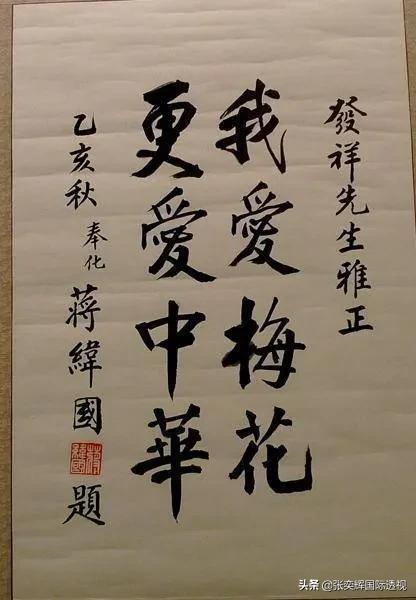 發祥先生雅正
我愛梅花
更愛中華
乙亥秋 奉化 蔣緯國 題
蔣緯國
头条 @张奕辉国际透视